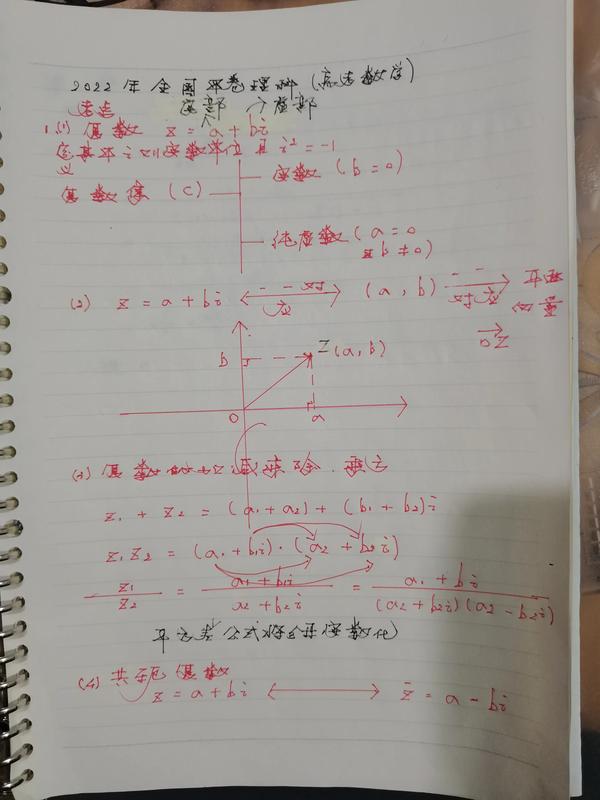 2022年全国卷理科(高考数学)
考点 实部 虚部
1.(1)复数 z = a + bi
定义 其中i叫虚数单位且i²=-1
实数(b=0)
复数集(C)
纯虚数(a=0
且b≠0)
(2) z = a + bi 一一对应 (a, b) 一一对应 平面向量 OZ
b Z(a,b)
0 a
(3)复数的加减乘除、乘方
z₁ + z₂ = (a₁ + a₂) + (b₁ + b₂)i
z₁z₂ = (a₁ + b₁i)·(a₂ + b₂i)
z₁/z₂ = a₁ + b₁i / a₂ + b₂i = a₁ + b₁i / (a₂ + b₂i)(a₂ - b₂i)
平方差公式将分母实数化)
(4)共轭复数
z = a + bi z̄ = a - bi